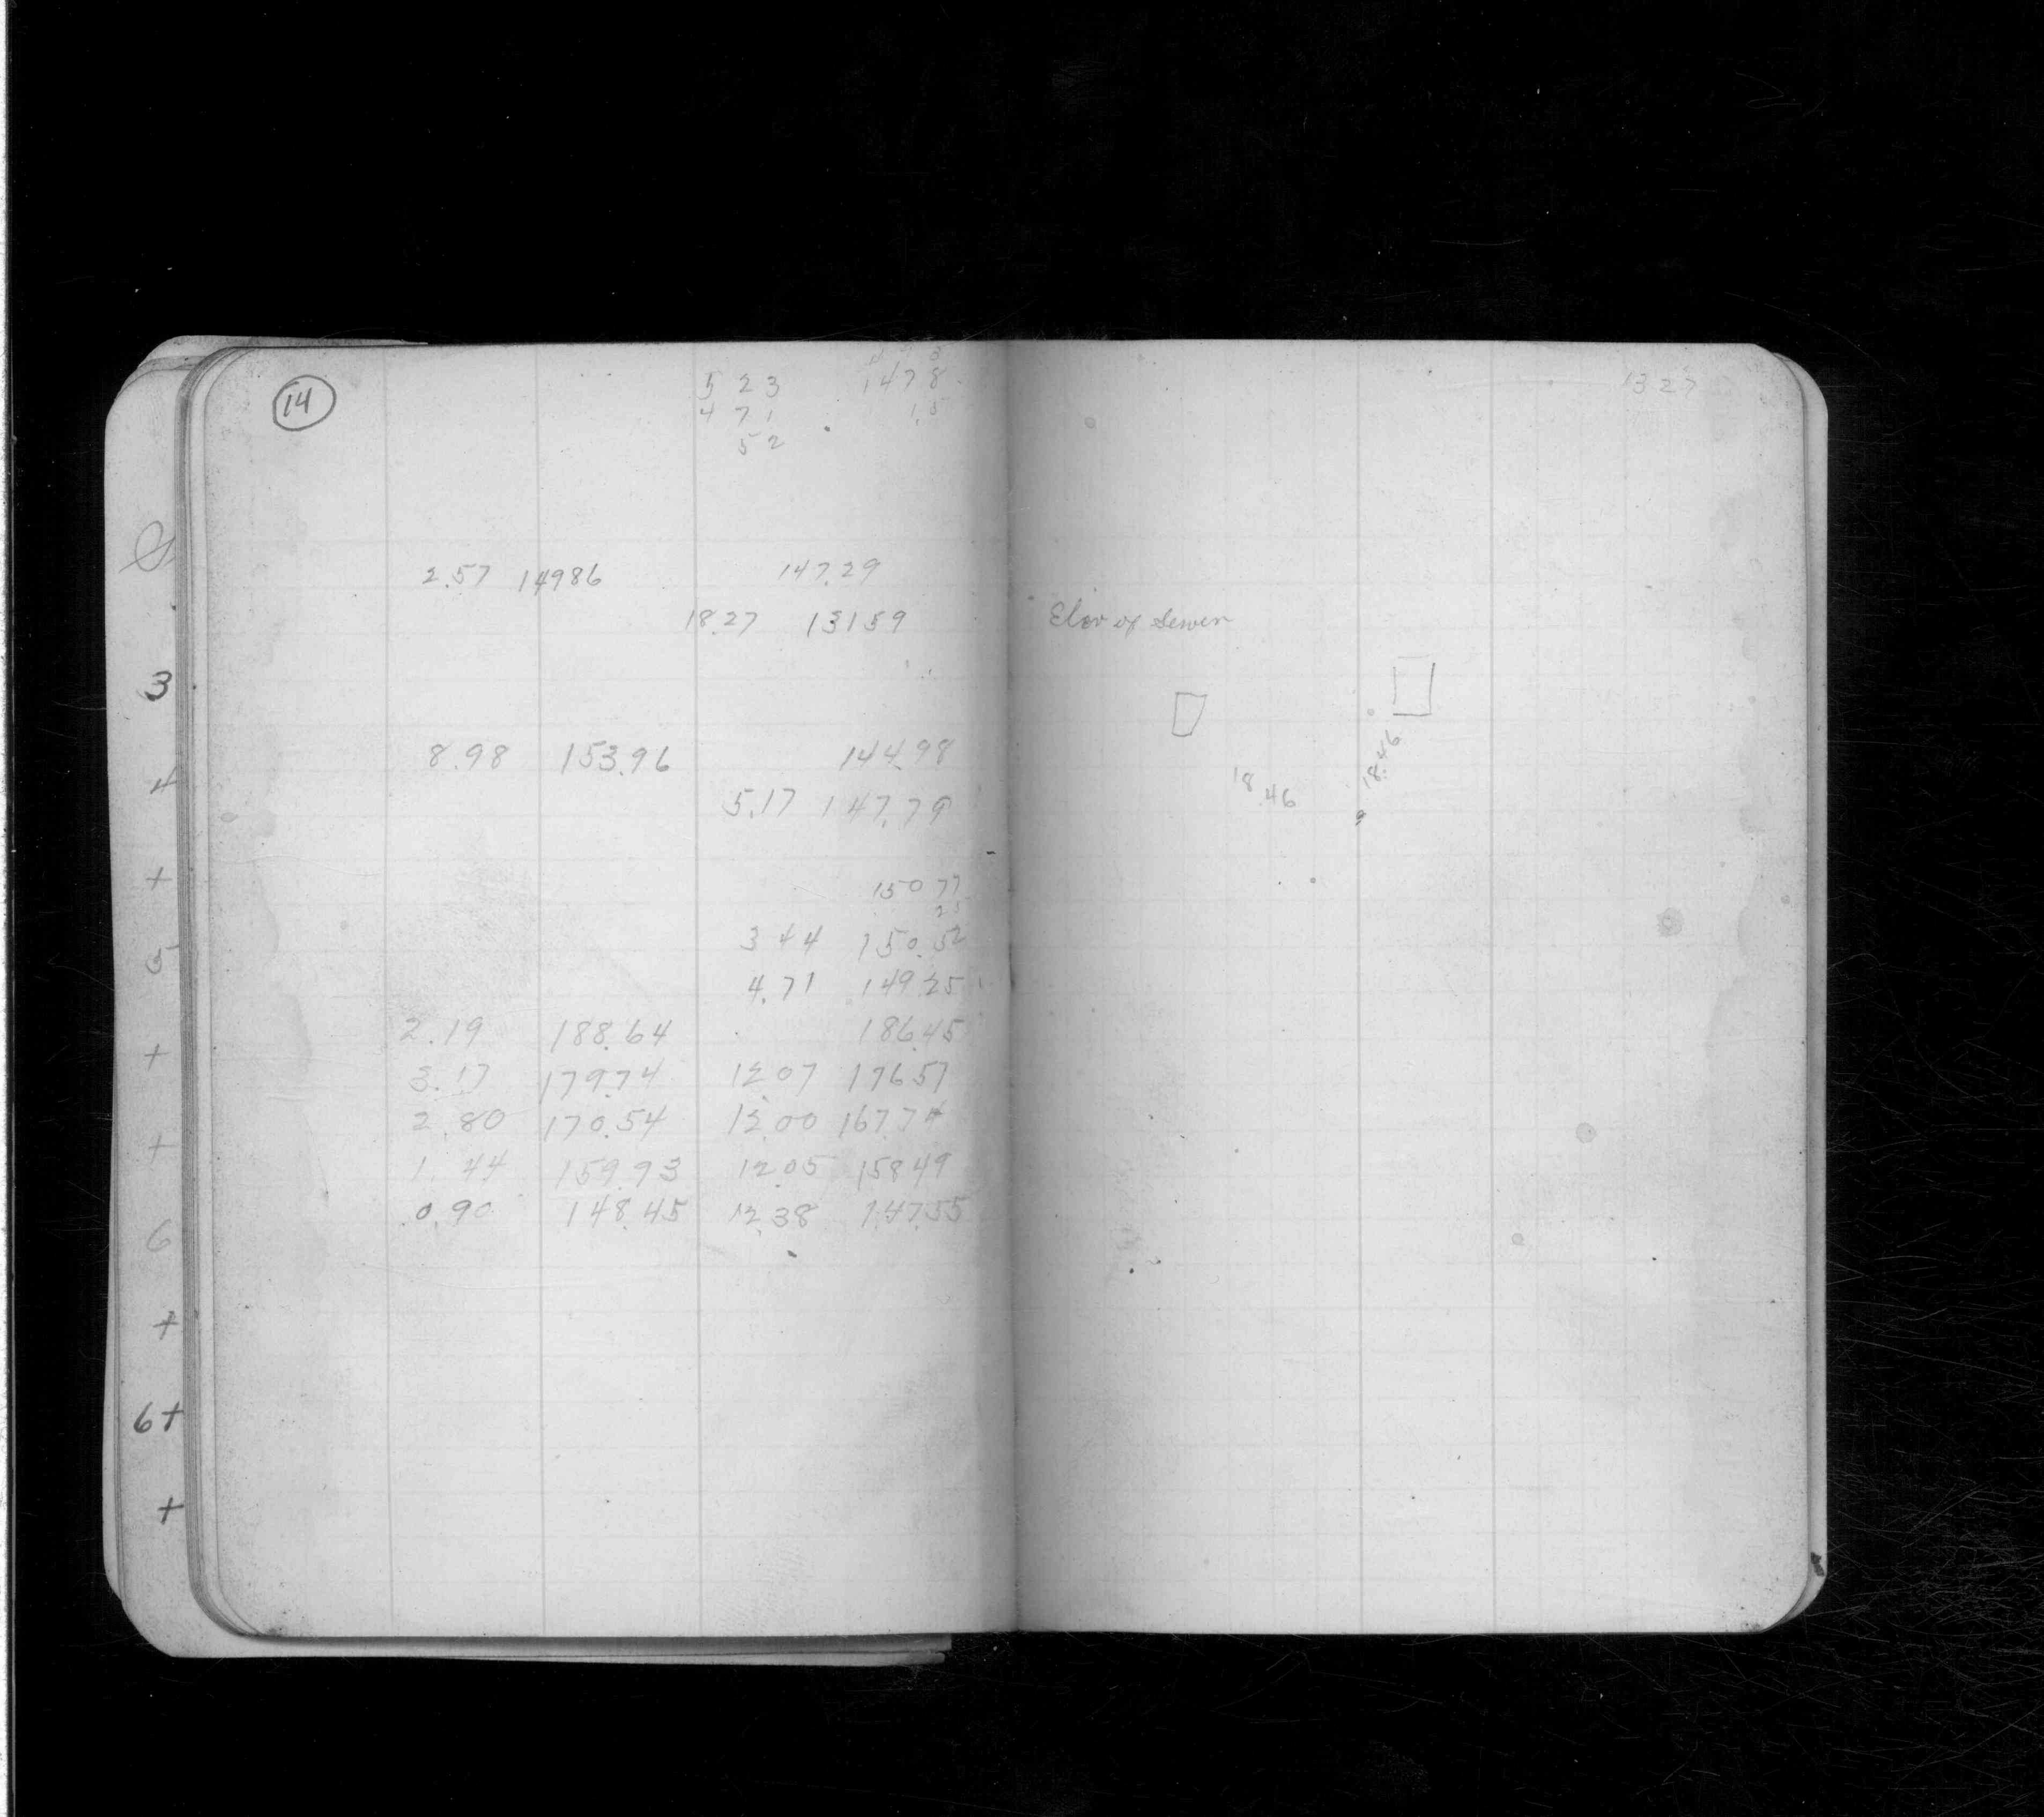 14
5 23 1478
4 71 15
52
1327
2.57 14986 147.29
18.27 13159 Elev of Sewer
3
8.98 153.96 144.98
18.46
18.46
4
5.17 147.79
+
150 77
25
3 44 150.52
5
4.71 149.25
2.19 188.64 186.45
+
3.17 179.74 12.07 176.57
2.80 170.54 12.00 167.74
+
1.44 159.93 12.05 158.49
0.90 148.45 12.38 147.55
6
+
6+
+